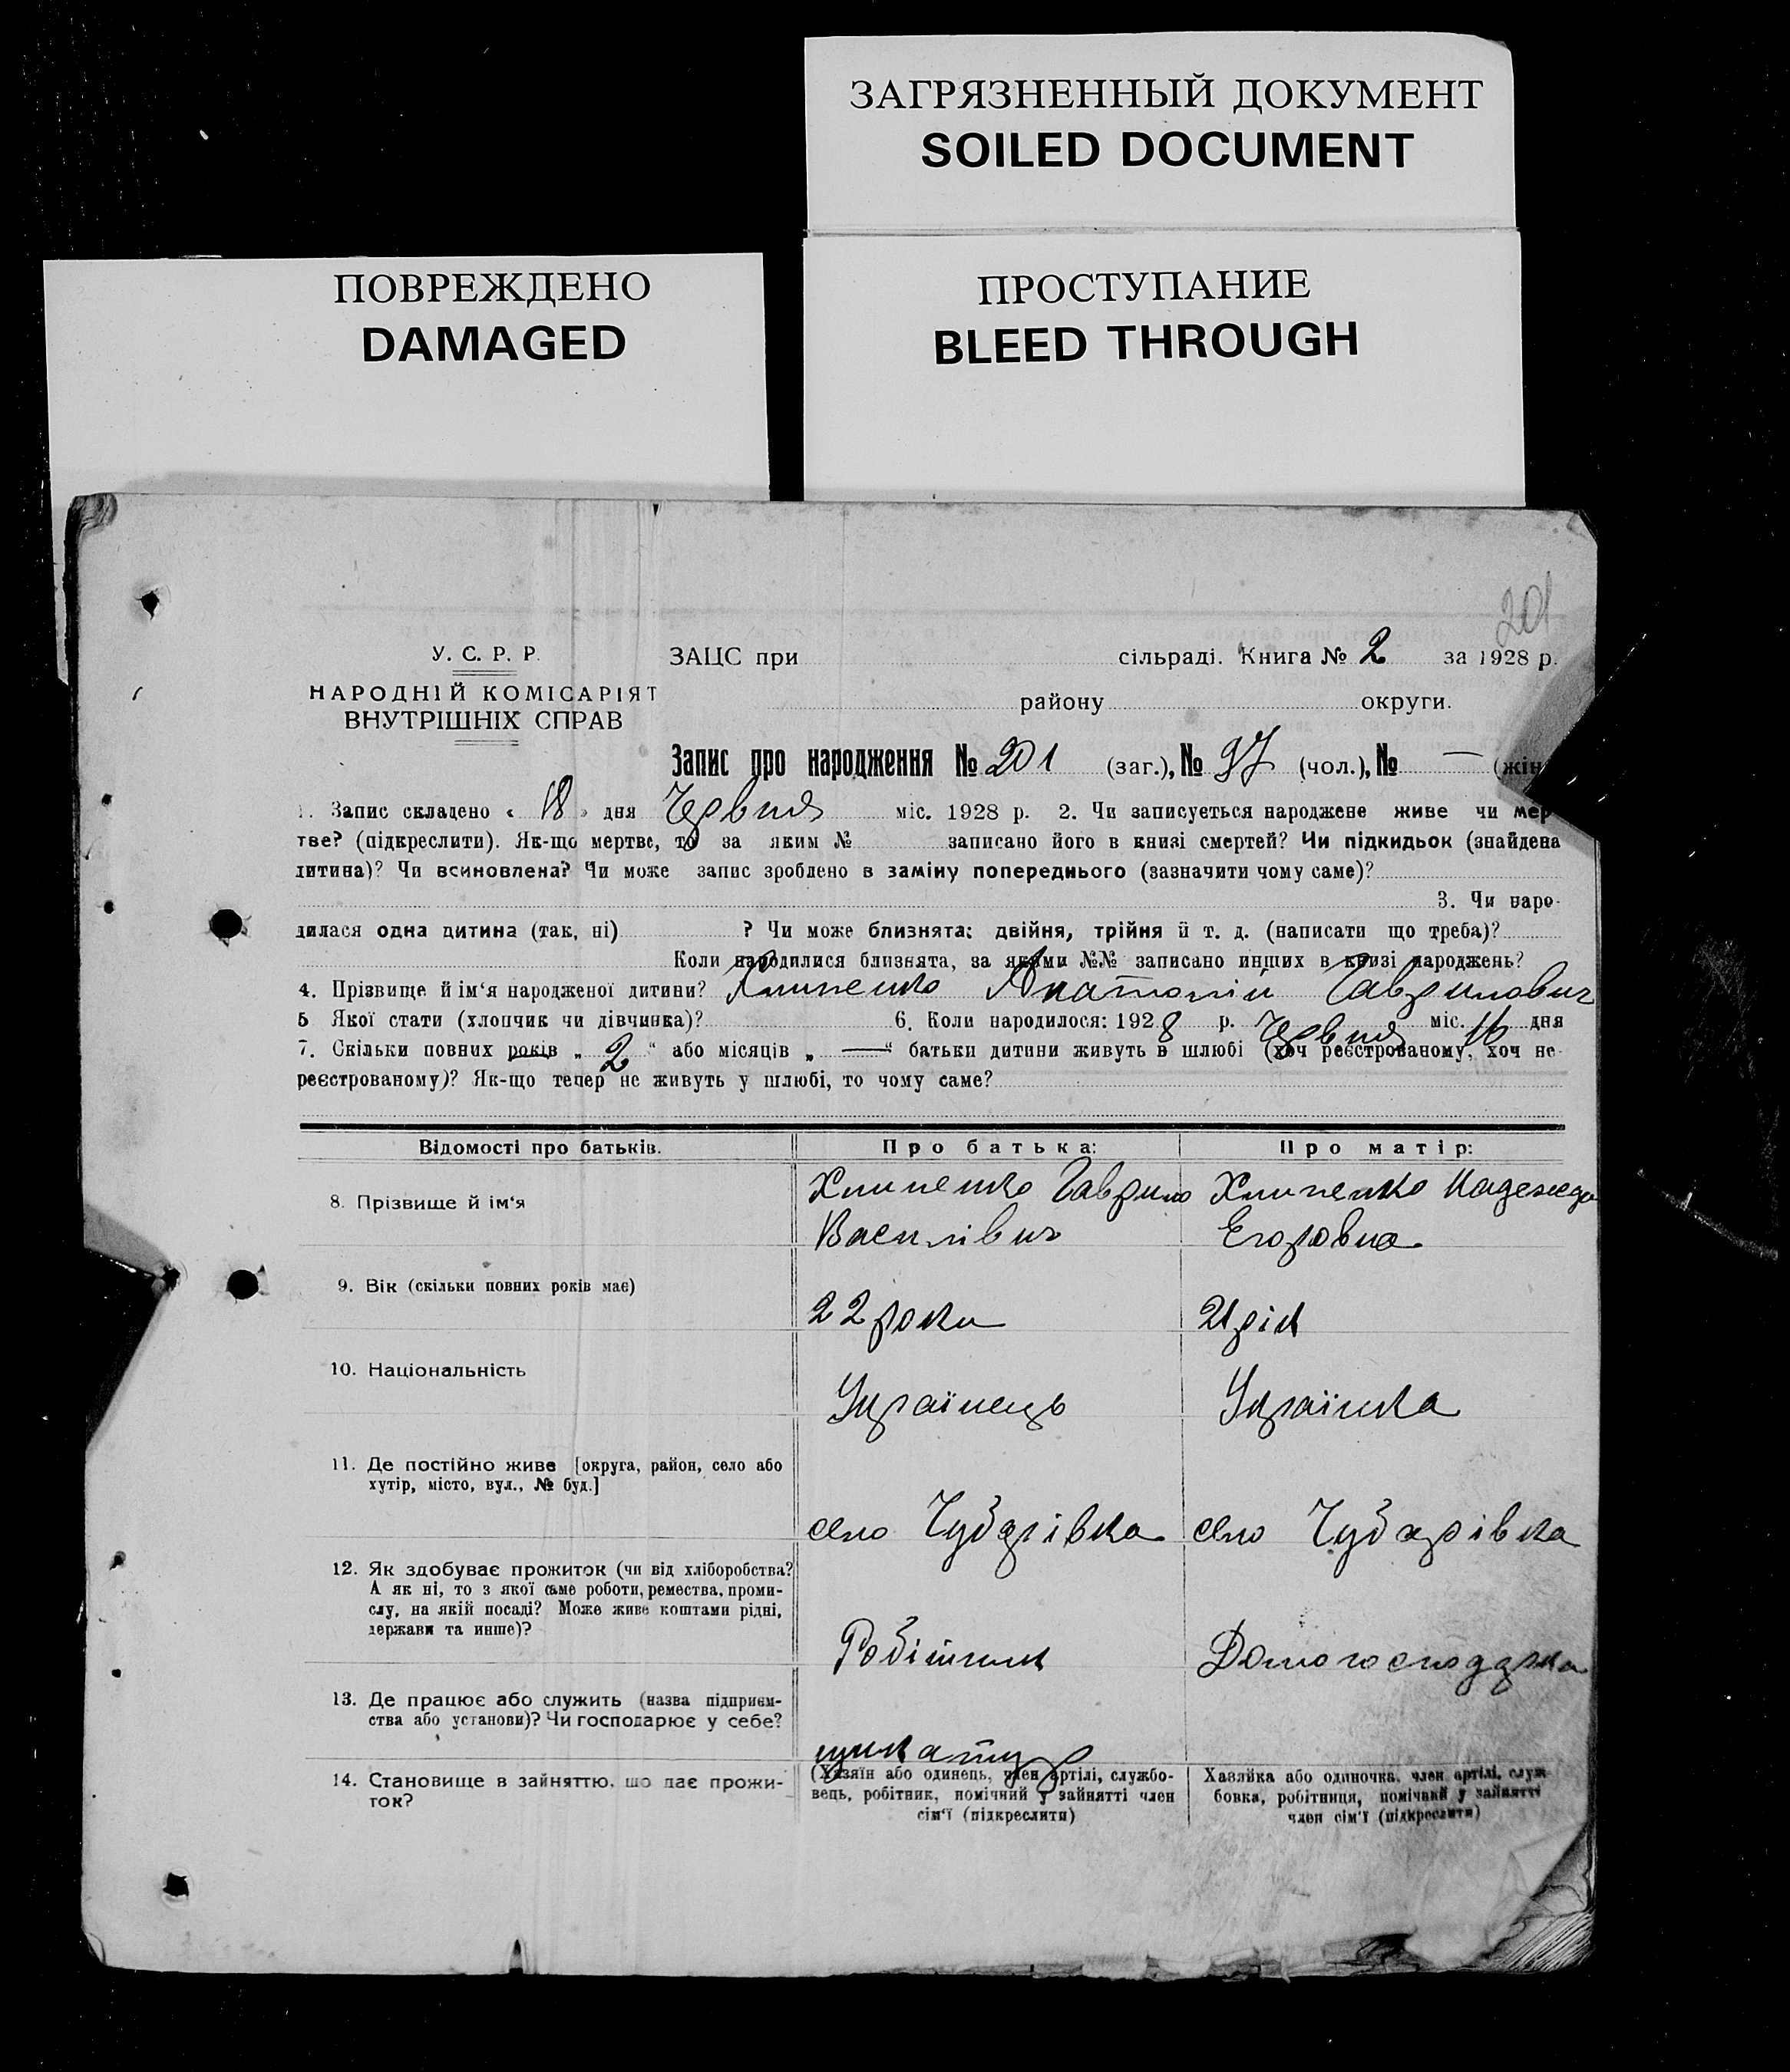 ЗАГРЯЗНЕННЫЙ ДОКУМЕНТ
SOILED DOCUMENT
ПОВРЕЖДЕНО
DAMAGED
ПРОСТУПАНИЕ
BLEED THROUGH
201
У. С. Р. Р.
НАРОДНІЙ КОМІСАРІЯТ
ВНУТРІШНІХ СПРАВ
ЗАЦС при сільраді. Книга № 2 за 1928 р.
району округи.
Запис про народження № 201 (заг.), № 97 (чол.), № — (жін
1. Запис складено « 18 » дня Червня міс. 1928 р. 2. Чи записується народжене живе чи мер-
тве? (підкреслити). Як-що мертве, то за яким № записано його в книзі смертей? Чи підкидьок (знайдена
дитина)? Чи всиновлена? Чи може запис зроблено в заміну попереднього (зазначити чому саме)?
3. Чи наро-
дилася одна дитина (так, ні) ? Чи може близнята: двійня, трійня й т. д. (написати що треба)?
Коли народилися близнята, за якими №№ записано инших в книзі народжень?
4. Прізвище й ім'я народженої дитини? Хлипенко Анатолій Гаврилович
5 Якої стати (хлопчик чи дівчинка)? 6. Коли народилося: 1928 р. Червня міс. 16 дня
7. Скільки повних років „ 2 “ або місяців „ — “ батьки дитини живуть в шлюбі (хоч реєстрованому, хоч не-
реєстрованому)? Як-що тепер не живуть у шлюбі, то чому саме?
Відомості про батьків. Про батька: Про матір:
8. Прізвище й ім'я
Хлипенко Гаврило Хлипенко Надежда
Васильович Егоровна
9. Вік (скільки повних років має)
22 роки 21 рік
10. Національність
Українець Українка
11. Де постійно живе [округа, район, село або
хутір, місто, вул., № буд.]
село Чубарівка село Чубарівка
12. Як здобуває прожиток (чи від хліборобства?
А як ні, то з якої саме роботи, ремества, проми-
слу, на якій посаді? Може живе коштами рідні,
держави та инше)?
Робітник Домогосподарка
13. Де працює або служить (назва підприєм-
ства або установи)? Чи господарює у себе?
14. Становище в зайняттю, що дає прожи-
ток?
(Хазяїн або одинець, член артілі, службо-
вець, робітник, помічний у зайнятті член
сім'ї (підкреслити)
Хазяйка або одиночка, член артілі, служ-
бовка, робітниця, помічний у зайнятті
член сім'ї (підкреслити)